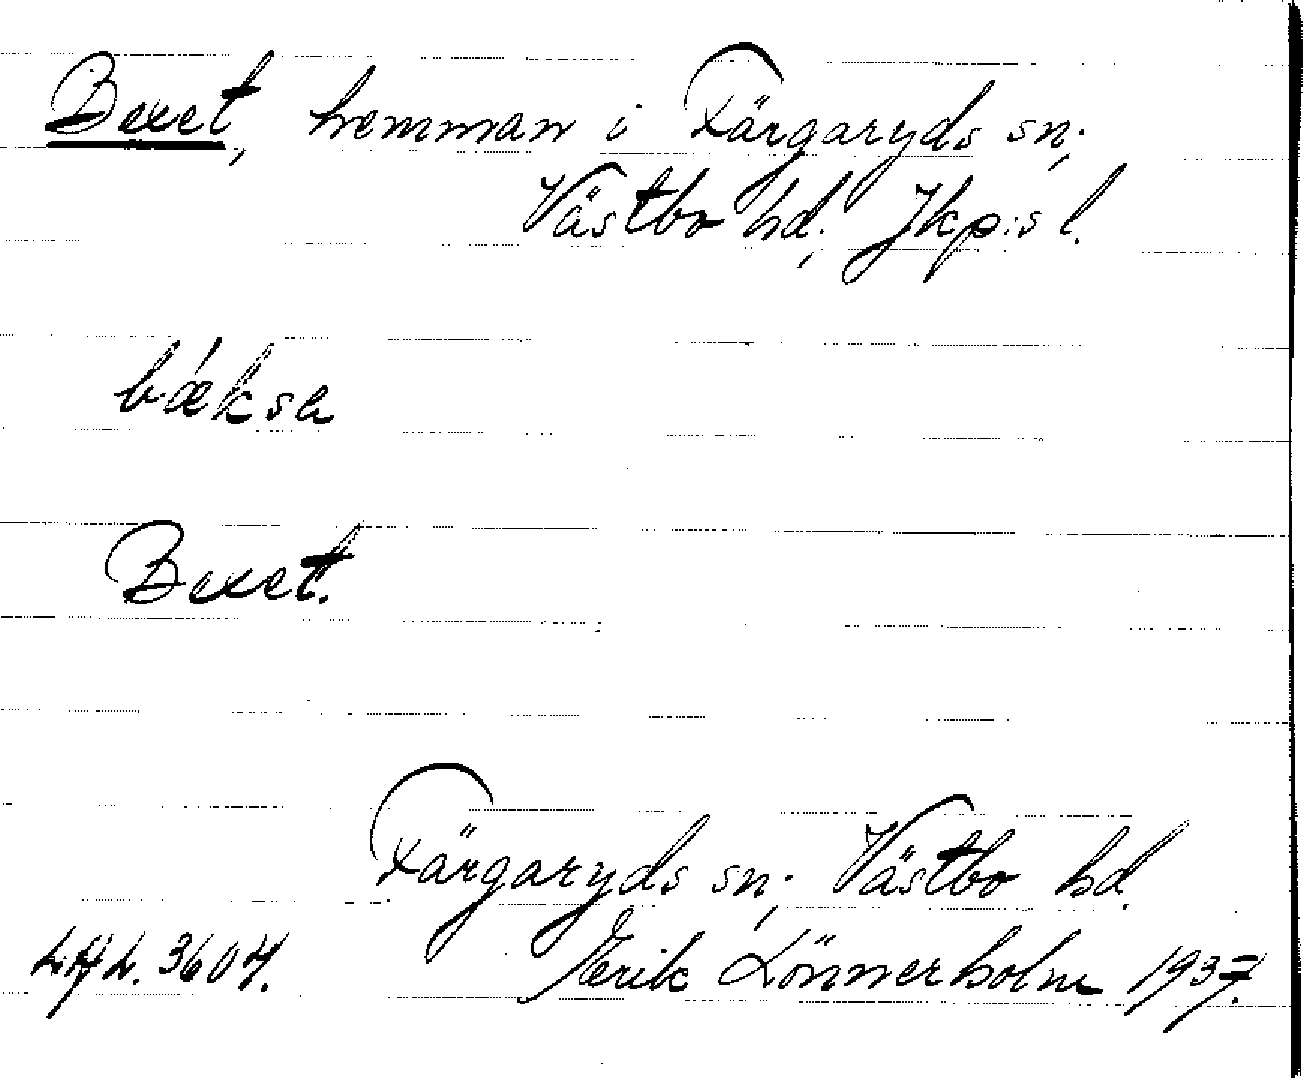 Bexet, hemman i Färgaryds sn;
Västbo hd; Jkp:s l.
bǽksa
Bexet.
Färgaryds sn; Västbo hd.
Erik Lönnerholm 1937.